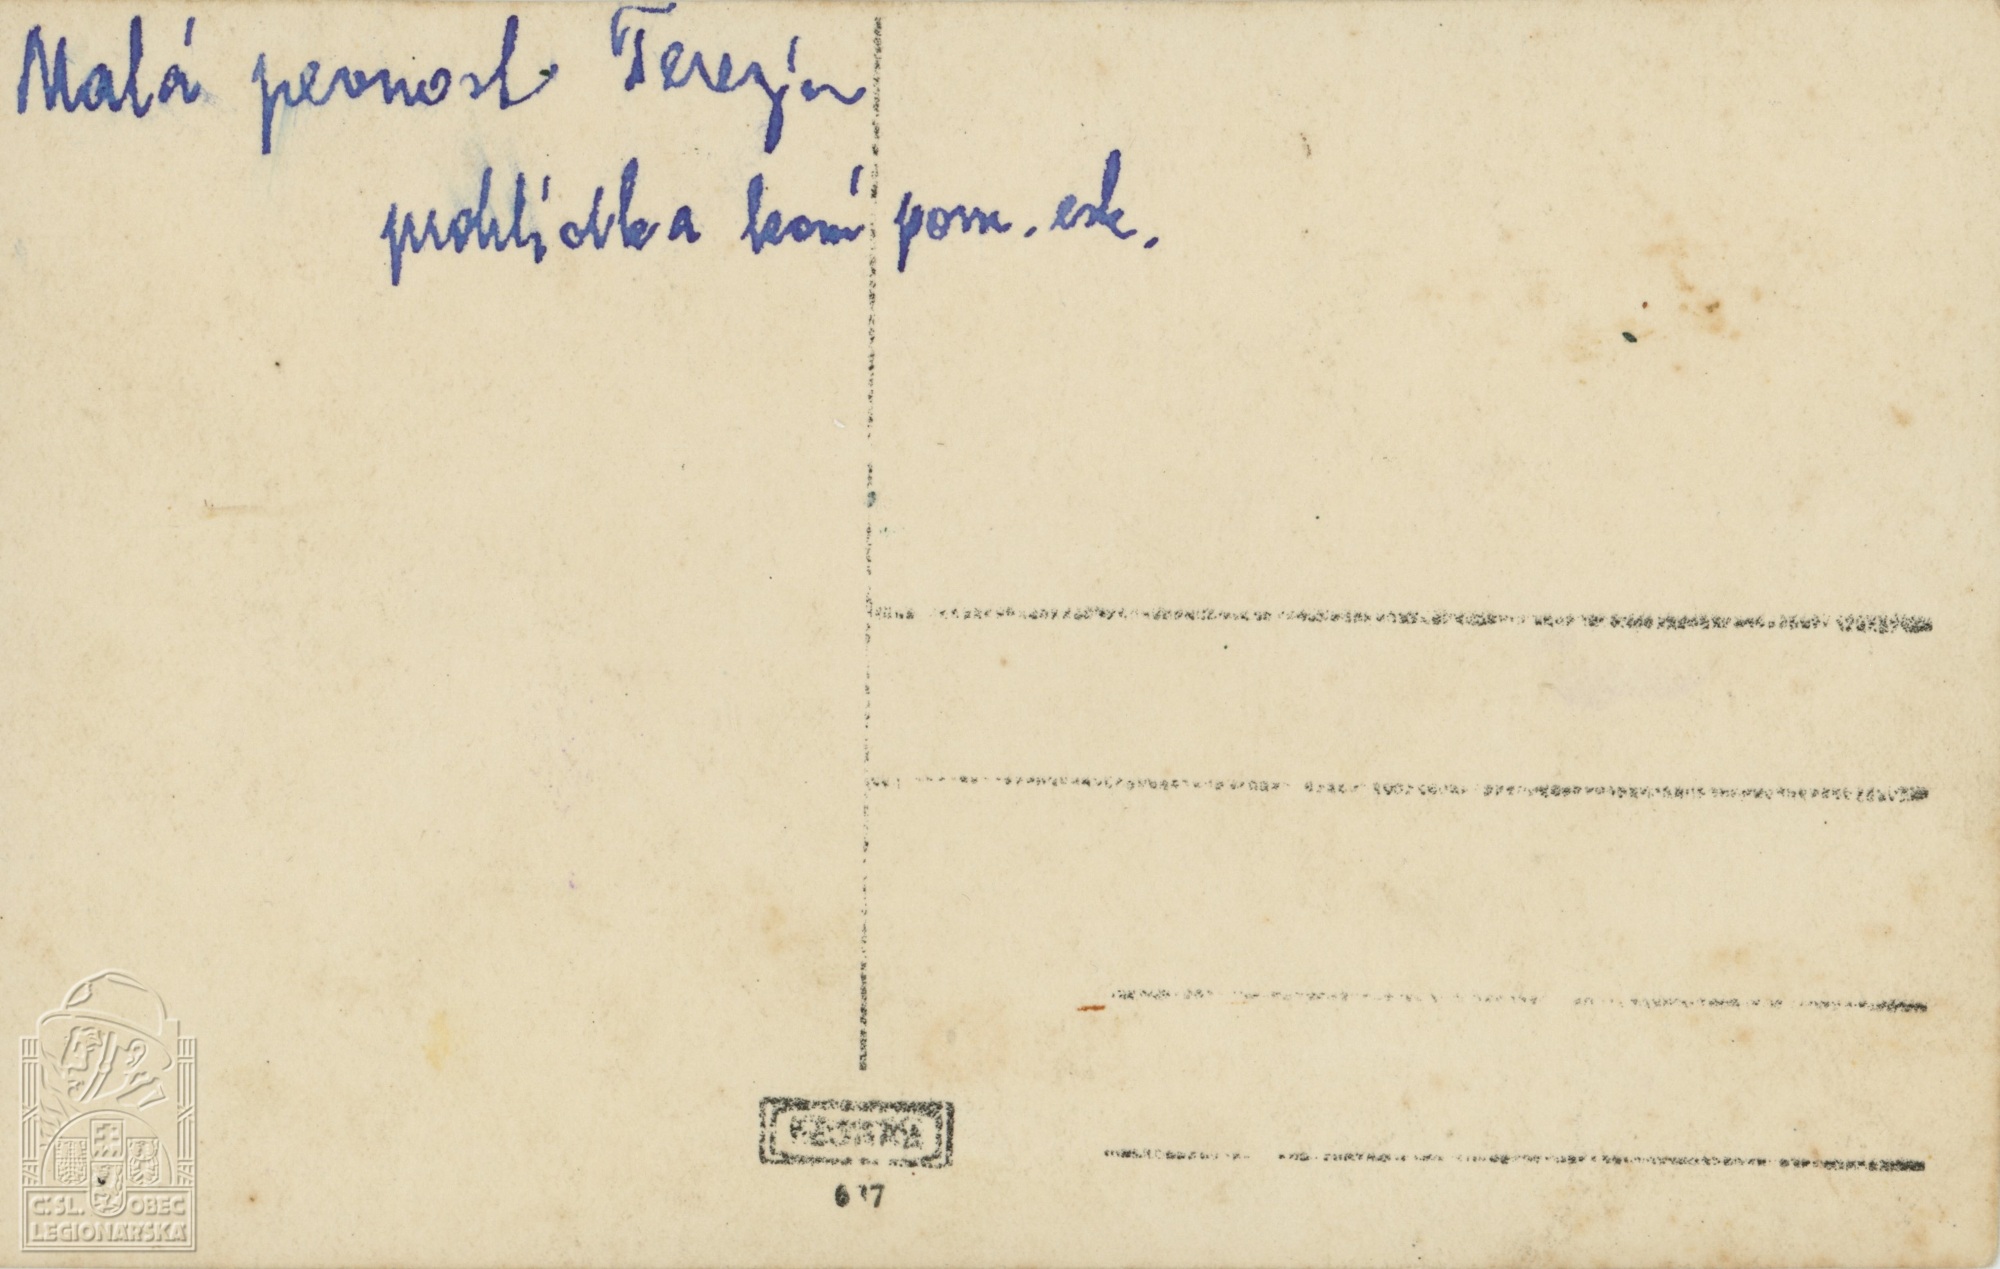 Malá pevnost Terezín
prohlídka koní pom. esk.
6 17
Č.SL. OBEC
LEGIONÁŘSKÁ